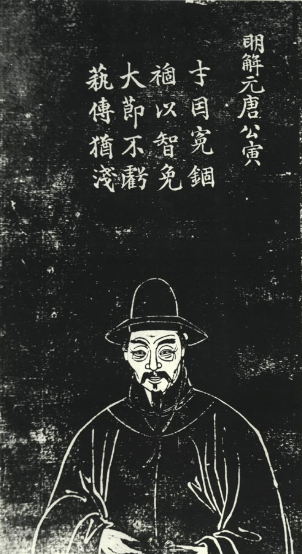 明解元唐公寅
才因冤錮
禍以智免
大節不虧
藝傳猶淺